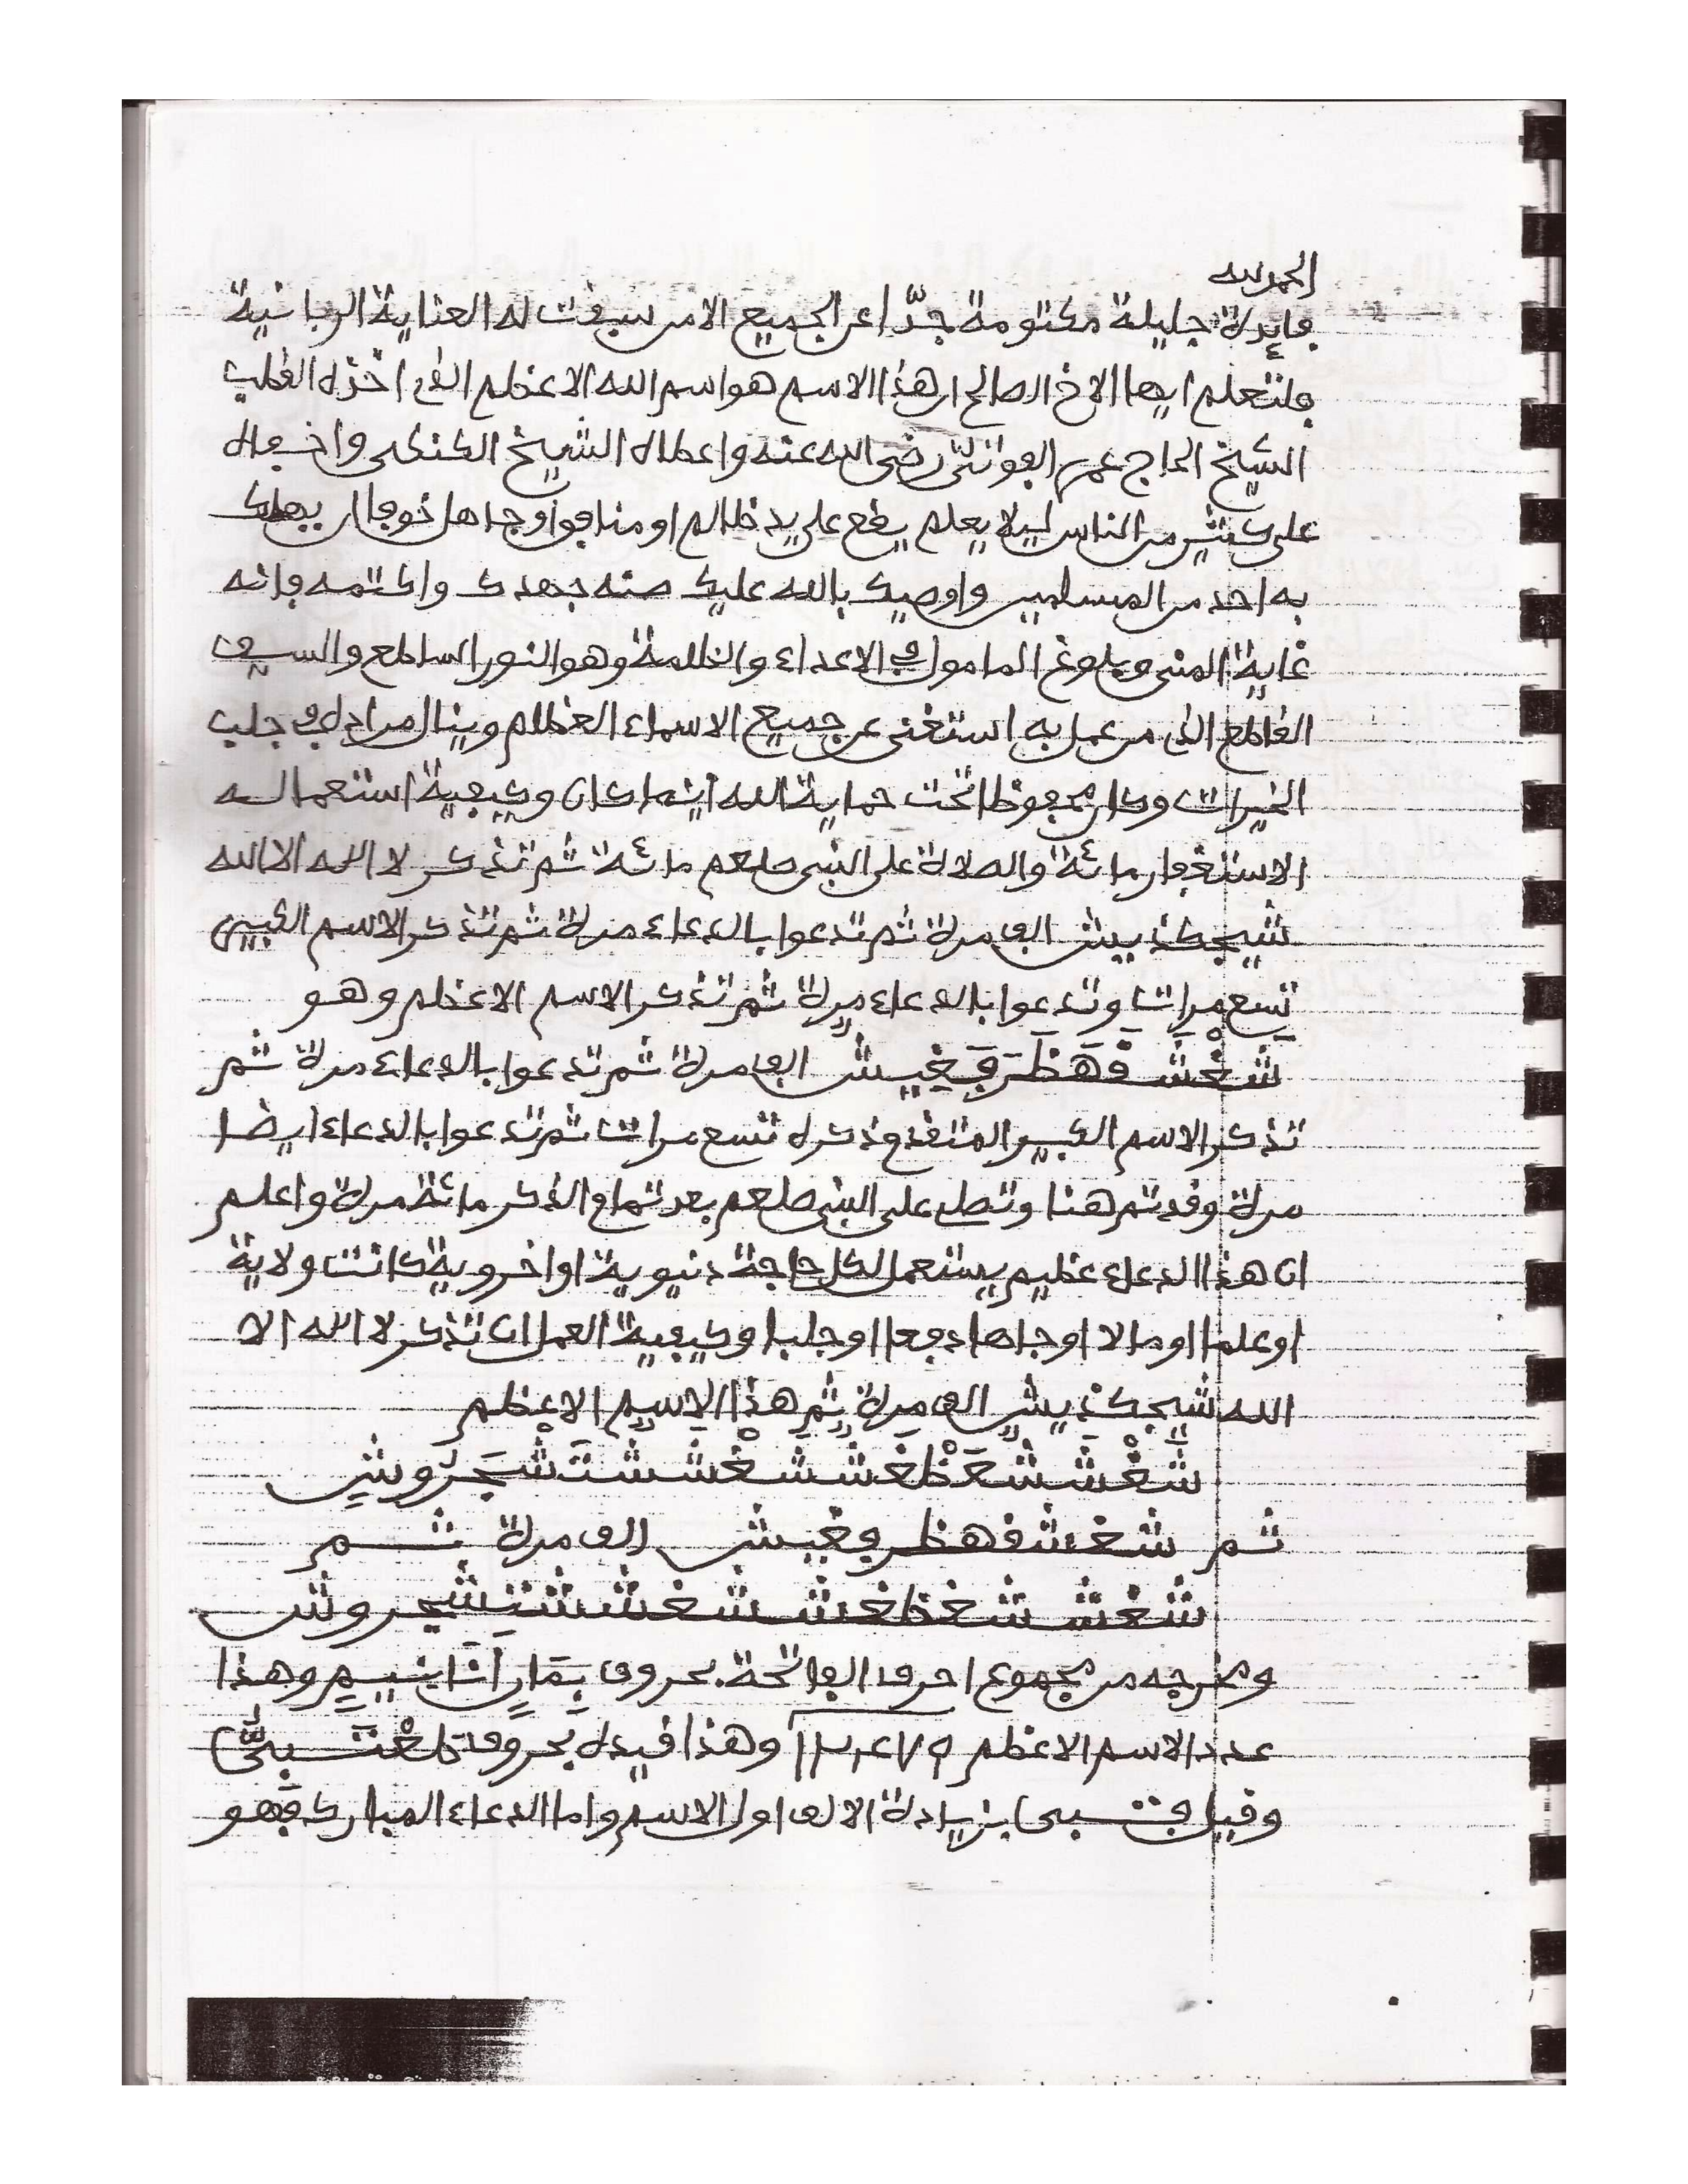 الحمد لله
فايدة جليلة مكتومة جدّا عن الجميع الا من سبقت له العناية الربانية
فلتعلم ايها الاخ الصالح ان هذا الاسم هو اسم الله الاعظم الذى اخذه القطب
الشيخ الحاج عمر الفوتيّ رضى الله عنه واعطاه الشيخ الكنكى واخفاه
على كثير من الناس ليلا يعلم يقع على يد ظالم او منافق او جاهل خوفا ان يهلك
به احد من المسلمين واوصيك بالله عليك صنه جهدك واكتمه فانه
غاية المنى وبلوغ المامول فى الاعداء والظلمة وهو النور الساطع والسيف
القاطع الذى من عمل به استغنى عن جميع الاسماء العظام وينال مراده فى جلب
الخيرات وكان محفوظا تحت حماية الله اينما كان وكيفية استعماله
الاستغفار مائة والصلاة على النبى صلعم مائة ثم تذكر لا اله الا الله
شيجكذييش الف مرة ثم تدعوا بالدعاء مرة ثم تذكر الاسم الكبير
تسع مرات وتدعوا بالدعاء مرة ثم تذكر الاسم الاعظم وهو
شَغْشَقْهَظَرَفَغِيش الف مرة ثم تدعوا بالدعاء مرة ثم
تذكر الاسم الكبير المتقدم ذكره تسع مرات ثم تدعوا بالدعاء ايضا
مرة وقد تم هنا وتصلى على النبى صلعم بعد تمام الذكر مائة مرة واعلم
ان هذا الدعاء عظيم يستعمل لكل حاجة دنيوية او اخروية كانت ولاية
او علما او مالا او جاها دفعا او جلبا وكيفية العمل ان تذكر لا اله الا
الله شيجكذييش الف مرة ثم هذا الاسم الاعظم
ثم شغشقهظرفغيش الف مرة ثم
ومخرجه من مجموع احرف الفاتحة بحروف وهذا
عدد الاسم الاعظم وهذا قيده بحروف
وقيل بزيادة الالف اول الاسم واما الدعاء المبارك فهو